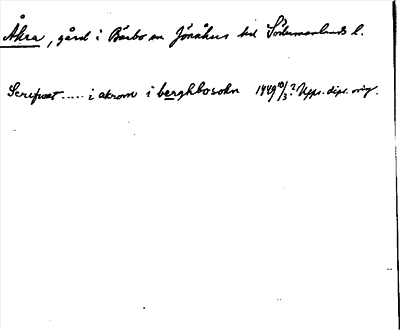 Åkra, gård i Bärbo sn Jönåkers hd Södermanlands l.
Scrifwet ..... i akrom i berghbosokn 1449 10/3? Upps. dipl. orig.